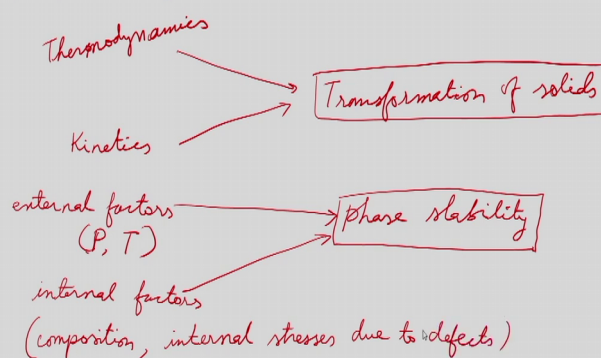 Thermodynamics
Transformation of solids
Kinetics
external factors
(P, T)
phase stability
internal factors
(composition, internal stresses due to defects)